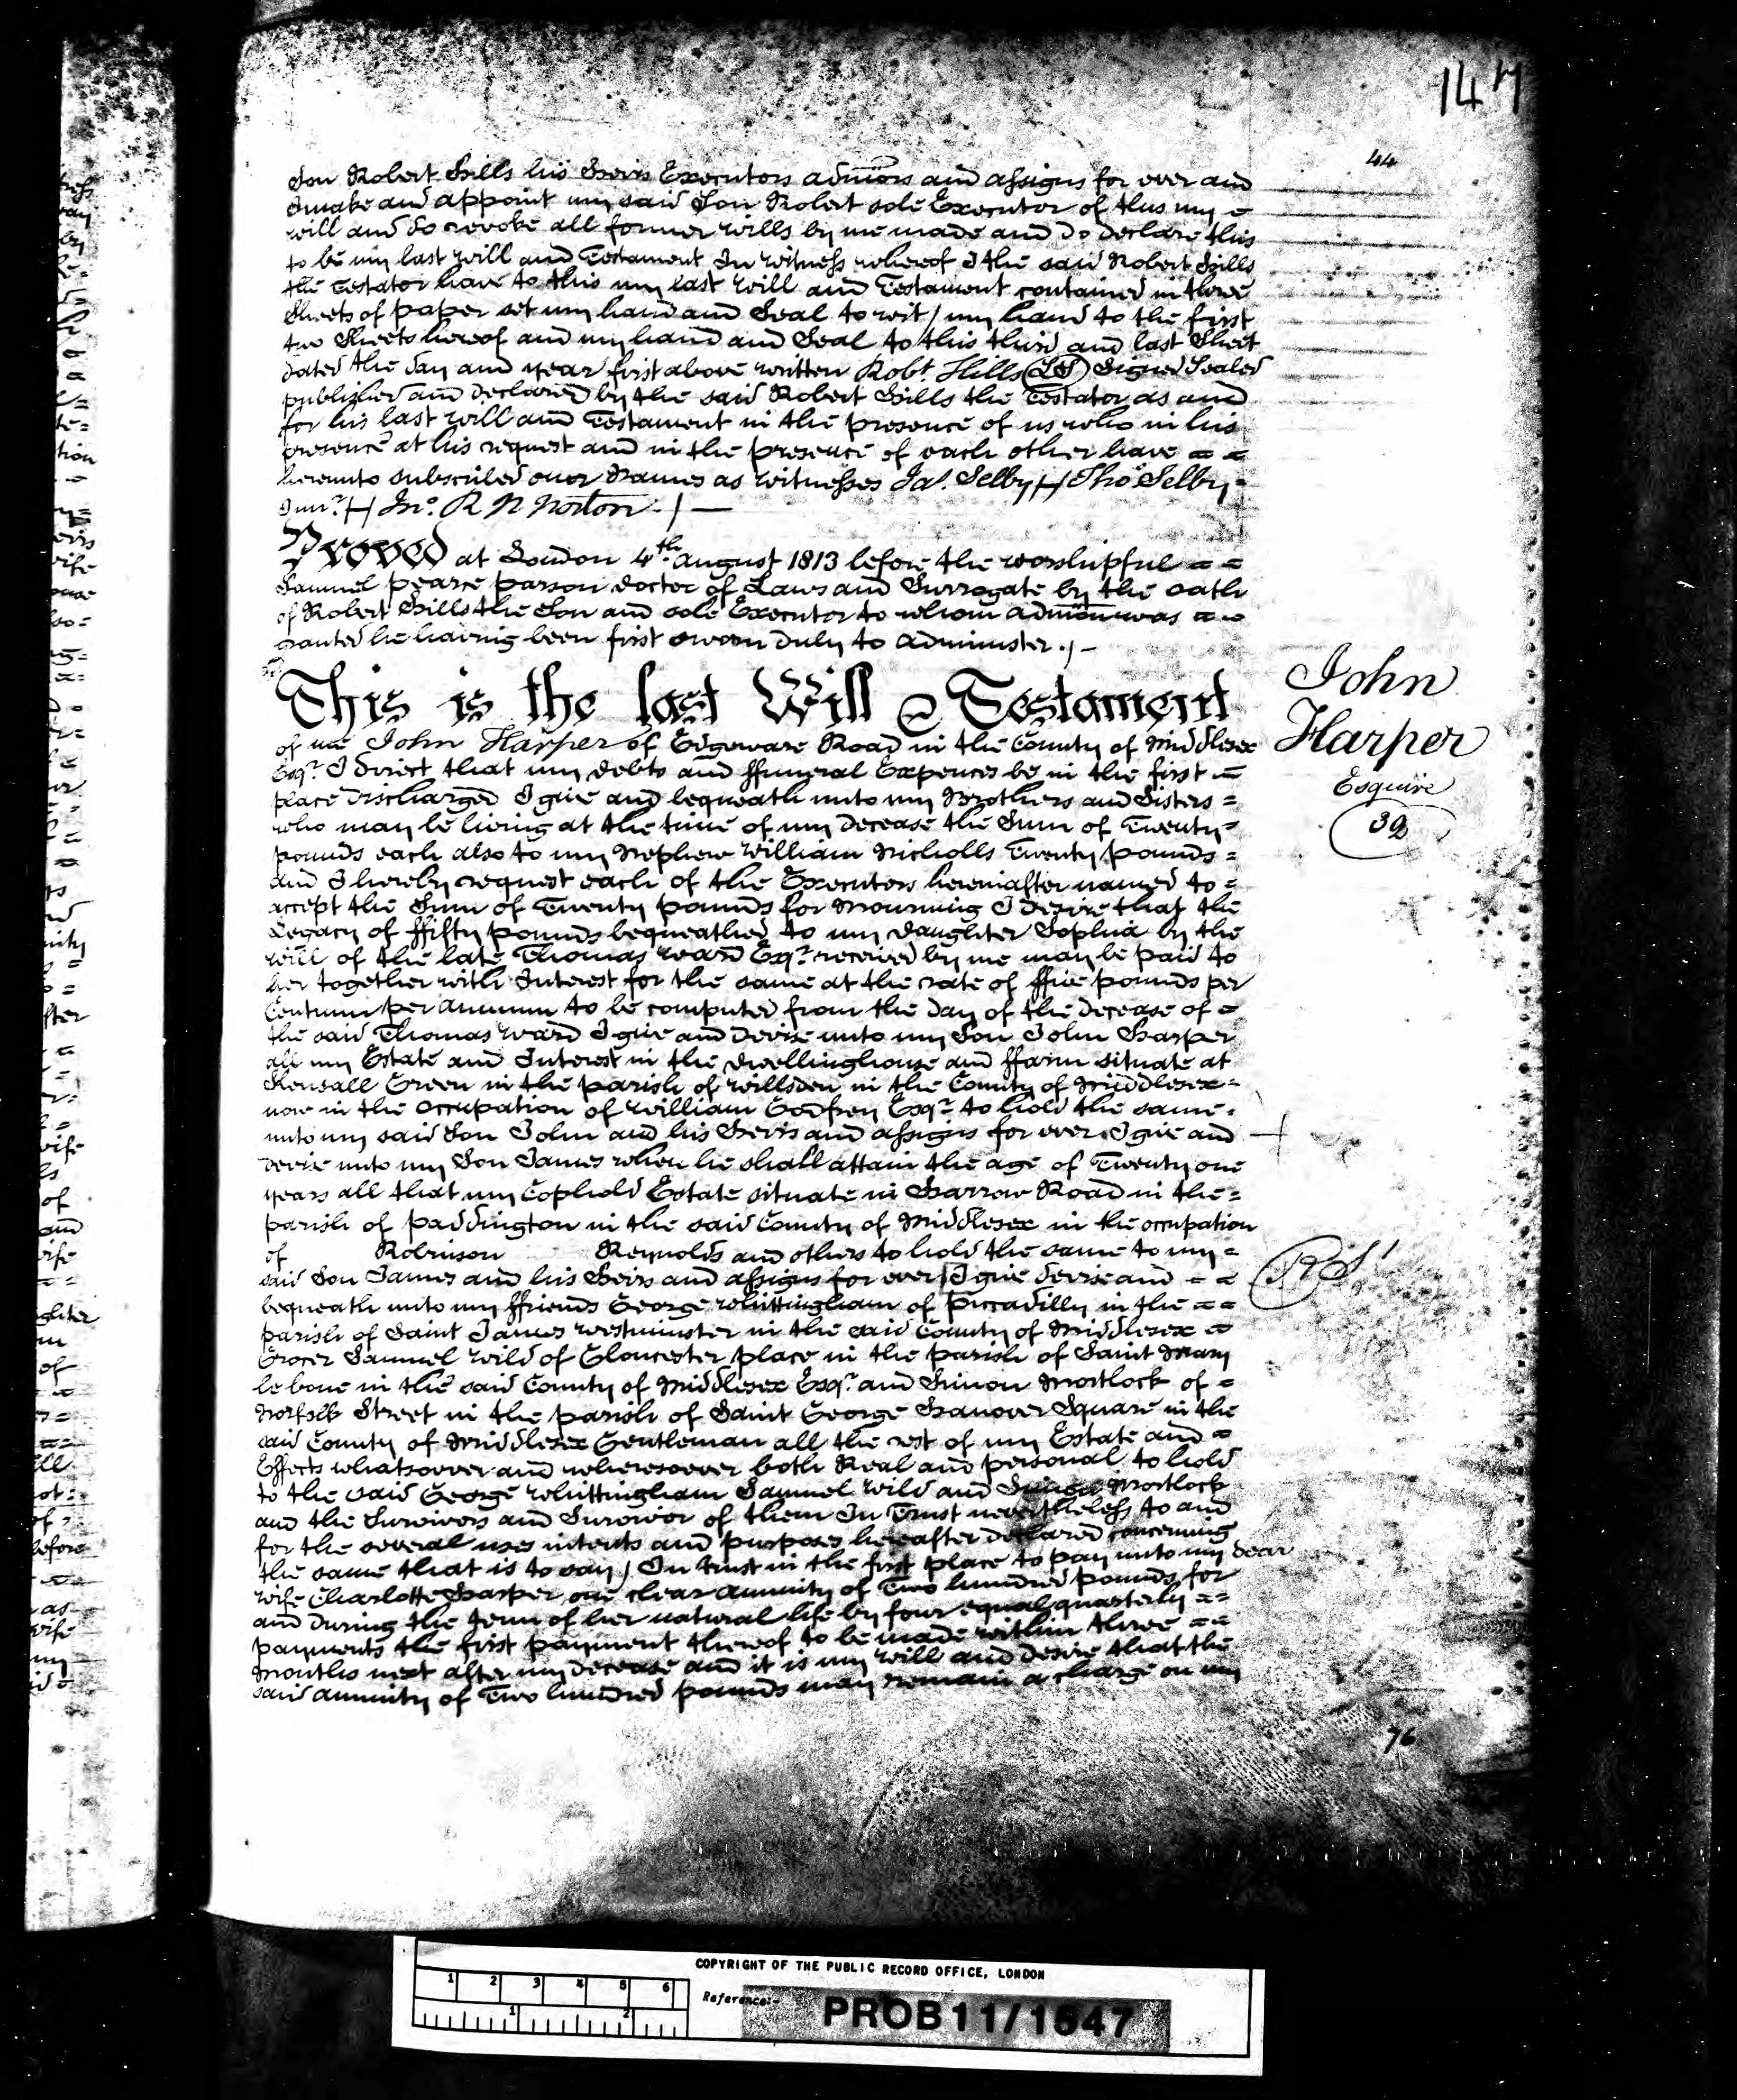 147
44
Son Robert Hills his Heirs Executors admors and assigns for ever and
I make and appoint my said Son Robert sole Executor of this my =
will and do revoke all former wills by me made and do declare this
to be my last will and Testament In witness whereof I the said Robert Hills
the Testator have to this my last will and Testament contained in three
Sheets of paper set my hand and Seal to wit / my hand to the first
two Sheets hereof and my hand and Seal to this third and last Sheet
dated the day and year first above written Robt. Hills (LS) Signed Sealed
published and declared by the said Robert Hills the Testator as and
for his last will and Testament in the presence of us who in his
presence at his request and in the presence of each other have = =
hereunto subscribed our Names as witnesses Jas. Selby H Tho Selby =
Junr. H Jno. R N Norton . / —
Proved at London 4th. August 1813 before the worshipful = =
Samuel Pearce Parson Doctor of Laws and Surrogate by the oath
of Robert Hills the Son and sole Executor to whom admon was = =
granted he having been first sworn duly to administer . / -
This is the last Will & Testament
of me John Harper of Edgeware Road in the County of Middlesex
Esqr. I direct that my debts and ffuneral Expences be in the first =
place discharged I give and bequeath unto my Brothers and Sisters =
who may be living at the time of my decease the Sum of Twenty =
pounds each also to my Nephew William Nicholls Twenty pounds =
and I hereby request each of the Executors hereinafter named to =
accept the Sum of Twenty pounds for Mourning I desire that the
Legacy of ffifty pounds bequeathed to my daughter Sophia by the
will of the late Thomas Ward Esqr. received by me may be paid to
her together with Interest for the same at the rate of ffive pounds per
Centum per annum to be computed from the day of the decease of =
the said Thomas Ward I give and devise unto my Son John Harper
all my Estate and Interest in the dwellinghouse and ffarm situate at
Kensall Green in the parish of Willsden in the County of Middlesex =
now in the occupation of William Godfrey Esqr. to hold the same .
unto my said Son John and his Heirs and assigns for ever I give and
devise unto my Son James when he shall attain the age of Twenty one
years all that my Cophold Estate situate in Harrow Road in the =
parish of Paddington in the said County of Middlesex in the occupation
of Robinson Reynolds and others to hold the same to my =
said Son James and his Heirs and assigns for ever I give devise and = =
bequeath unto my ffriends George Whittingham of Piccadilly in the = =
parish of Saint James Westminster in the said County of Middlesex =
Grocer Samuel Wild of Gloucester place in the parish of Saint Mary
le bone in the said County of Middlesex Esqr. and Simon Mortlock of =
Norfolk Street in the parish of Saint George Hanover Square in the
said County of Middlesex Gentleman all the rest of my Estate and =
Effects whatsoever and wheresoever both Real and personal to hold
to the said George Whittingham Samuel Wild and Simon Mortlock
and the Survivors and Survivor of them In Trust nevertheless to and
for the several uses intents and purposes hereafter declared concerning
the same that is to say / In trust in the first place to pay unto my dear
wife Charlotte Harper one clear annuity of Two hundred pounds for
and during the term of her natural life by four equal quarterly = =
payments the first payment thereof to be made within three = =
months next after my decease and it is my will and desire that the
said annuity of Two hundred pounds may remain a charge on my
John
Harper
Esquire
39
76
COPYRIGHT OF THE PUBLIC RECORD OFFICE, LONDON
1 2 3 4 5 6
1 2
Reference:-
PROB 11/1547